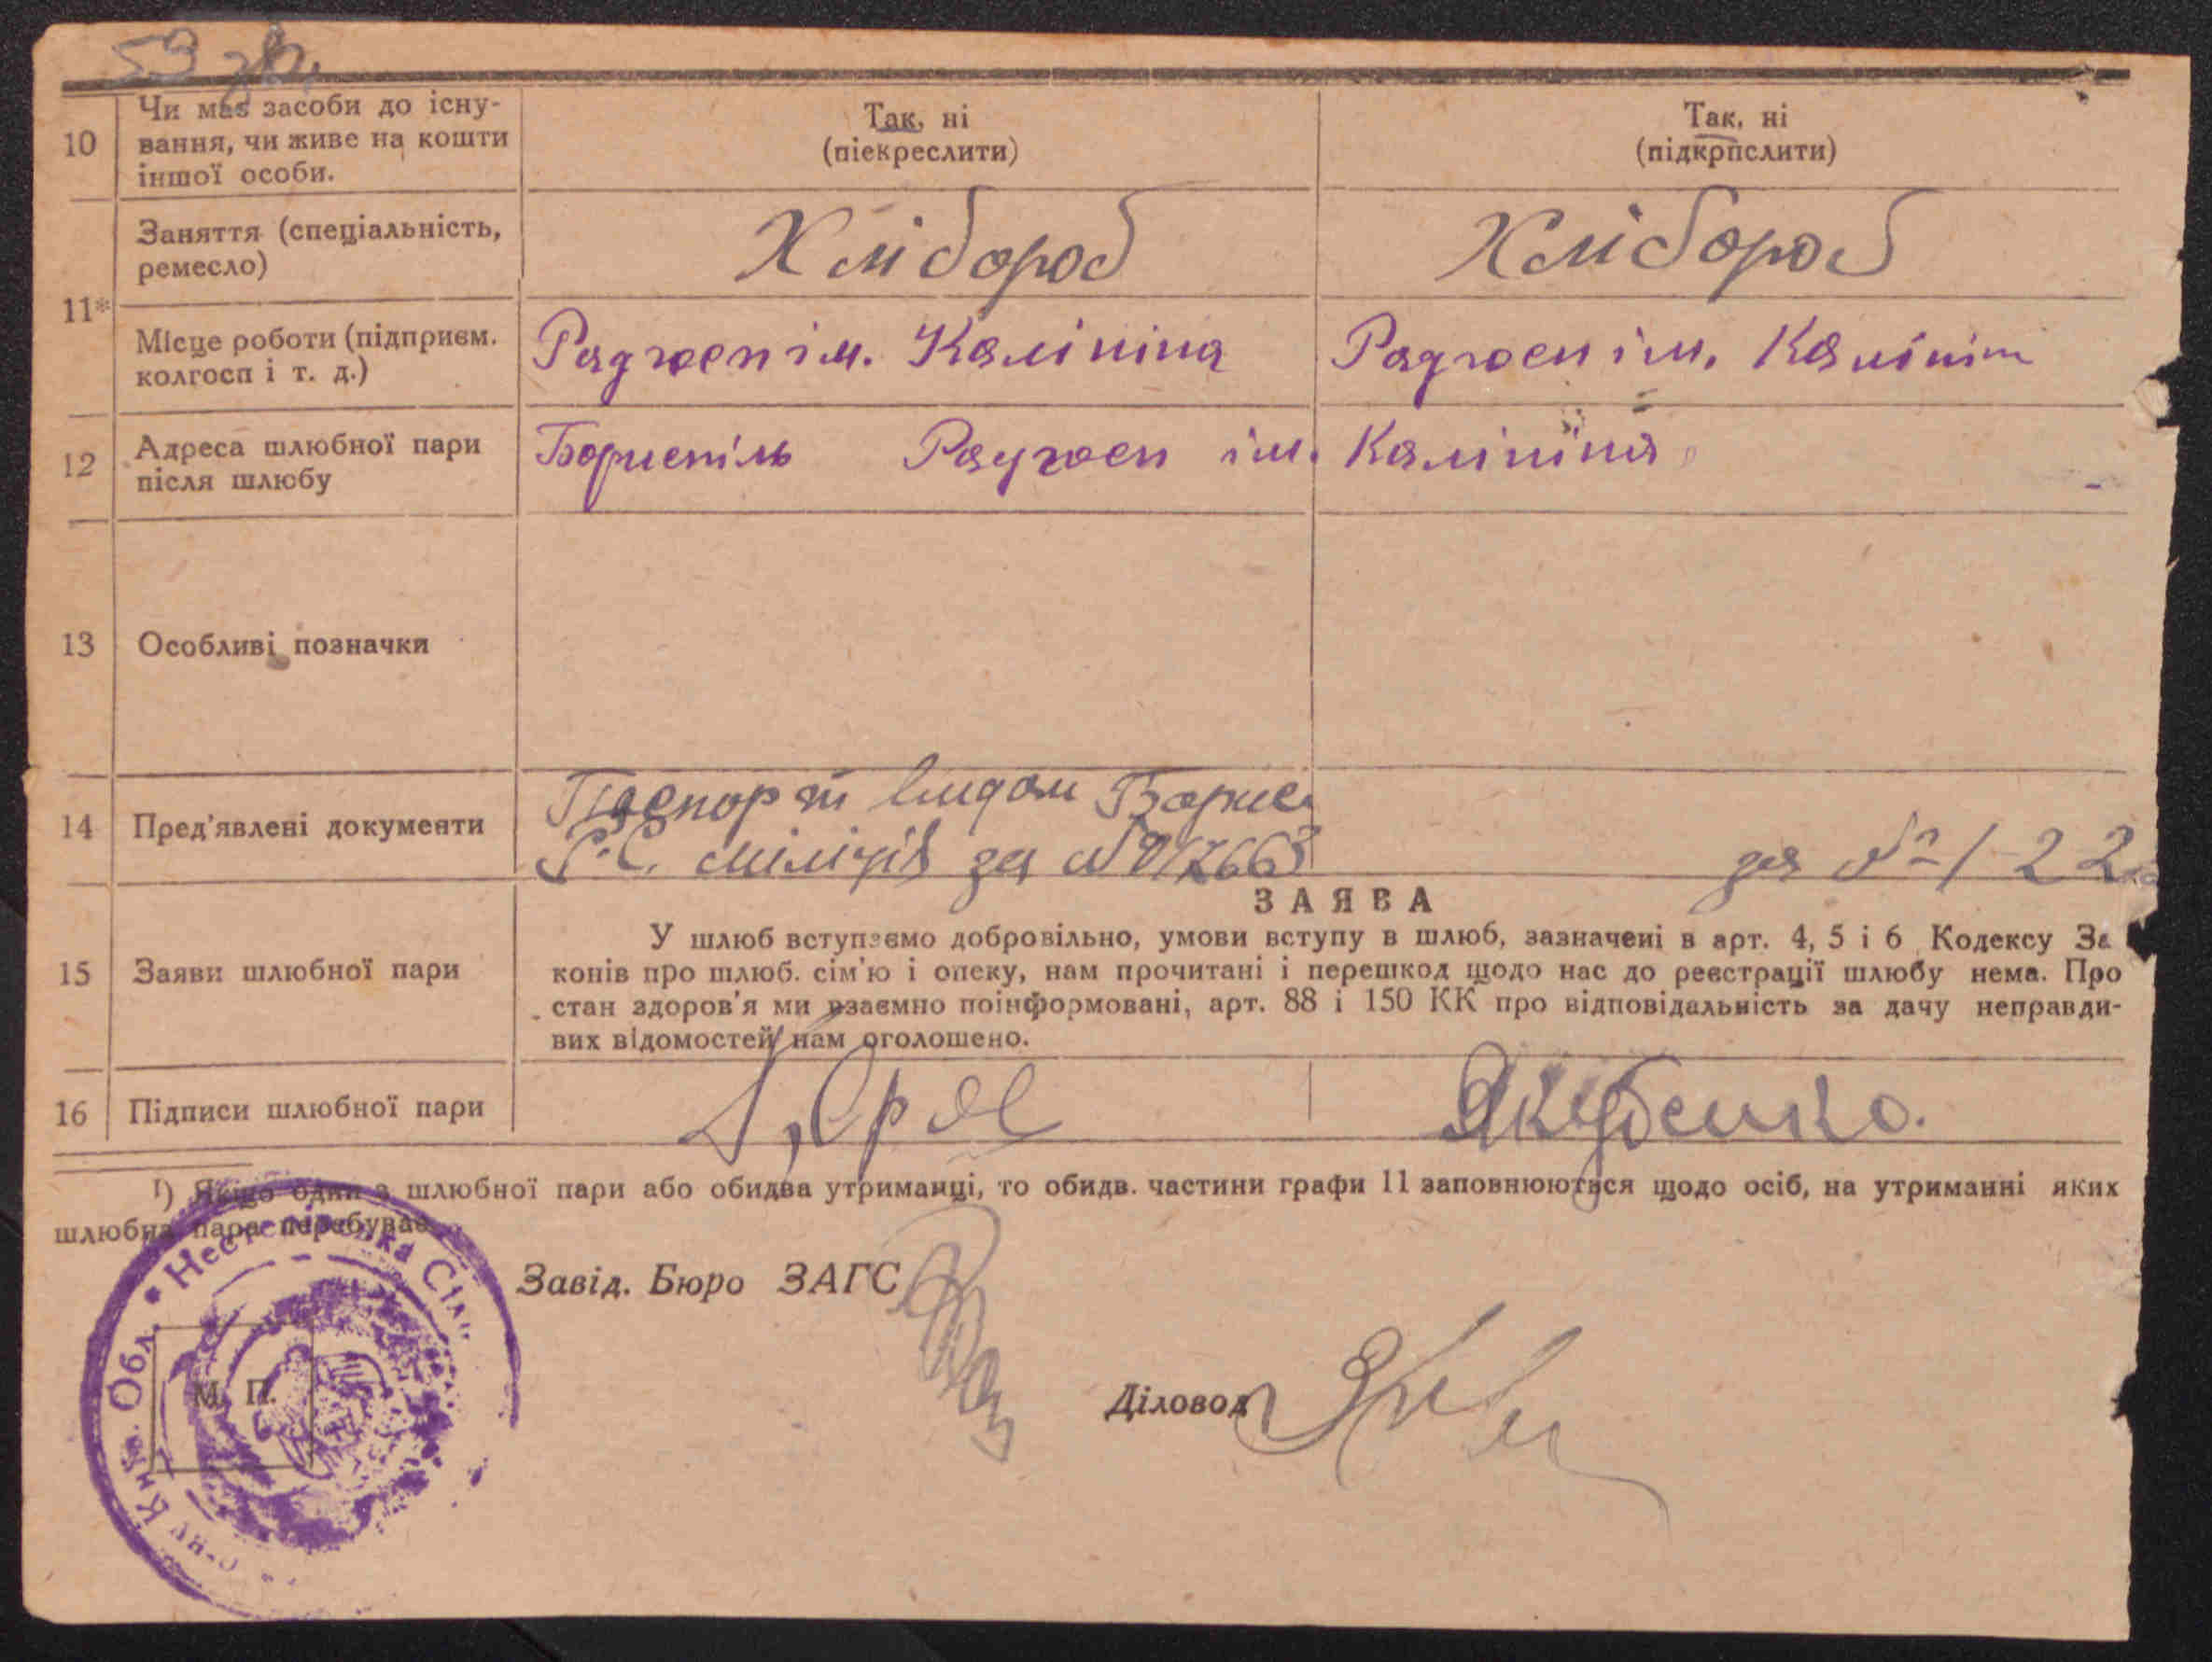 59 зв.
10 Чи має засоби до існу-
вання, чи живе на кошти
іншої особи.
Так, ні
(піекреслити)
Так, ні
(підкрпслити)
11*
Заняття (спеціальність,
ремесло)
Хлібороб
Хлібороб
Місце роботи (підприєм.
колгосп і т. д.)
Радгосп ім. Калініна
Радгосп ім. Калінін
12 Адреса шлюбної пари
після шлюбу
Бориспіль Радгосп ім. Калініна
13 Особливі позначки
14 Пред'явлені документи
Паспорт видан Борис.
Р.С. міліції за №
за № 122
ЗАЯВА
15 Заяви шлюбної пари
У шлюб вступаємо добровільно, умови вступу в шлюб, зазначені в арт. 4, 5 і 6 Кодексу За
конів про шлюб. сім'ю і опеку, нам прочитані і перешкод щодо нас до реєстрації шлюбу нема. Про
стан здоров'я ми взаємно поінформовані, арт. 88 і 150 КК про відповідальність за дачу неправди-
вих відомостей нам оголошено.
16 Підписи шлюбної пари
Якубенко.
1) Якщо один з шлюбної пари або обидва утриманці, то обидв. частини графи 11 заповнюються щодо осіб, на утриманні яких
шлюбна пара перебуває.
Завід. Бюро ЗАГС
Діловод
М. П.
р-ну Київ. Обл.